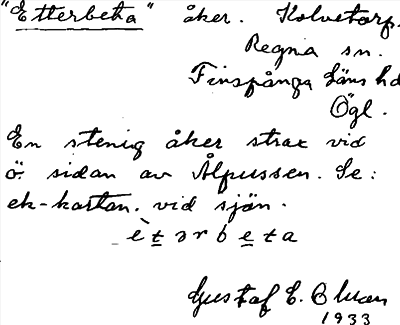 "Etterbeta" åker. Kolvetorp.
Regna sn.
Finspånga Läns hd
Ögl.
En stenig åker strax vid
ö. sidan av Ålpussen. Se:
ek-kartan. vid sjön.
ètərbeta
Gustaf E. Ohman
1933